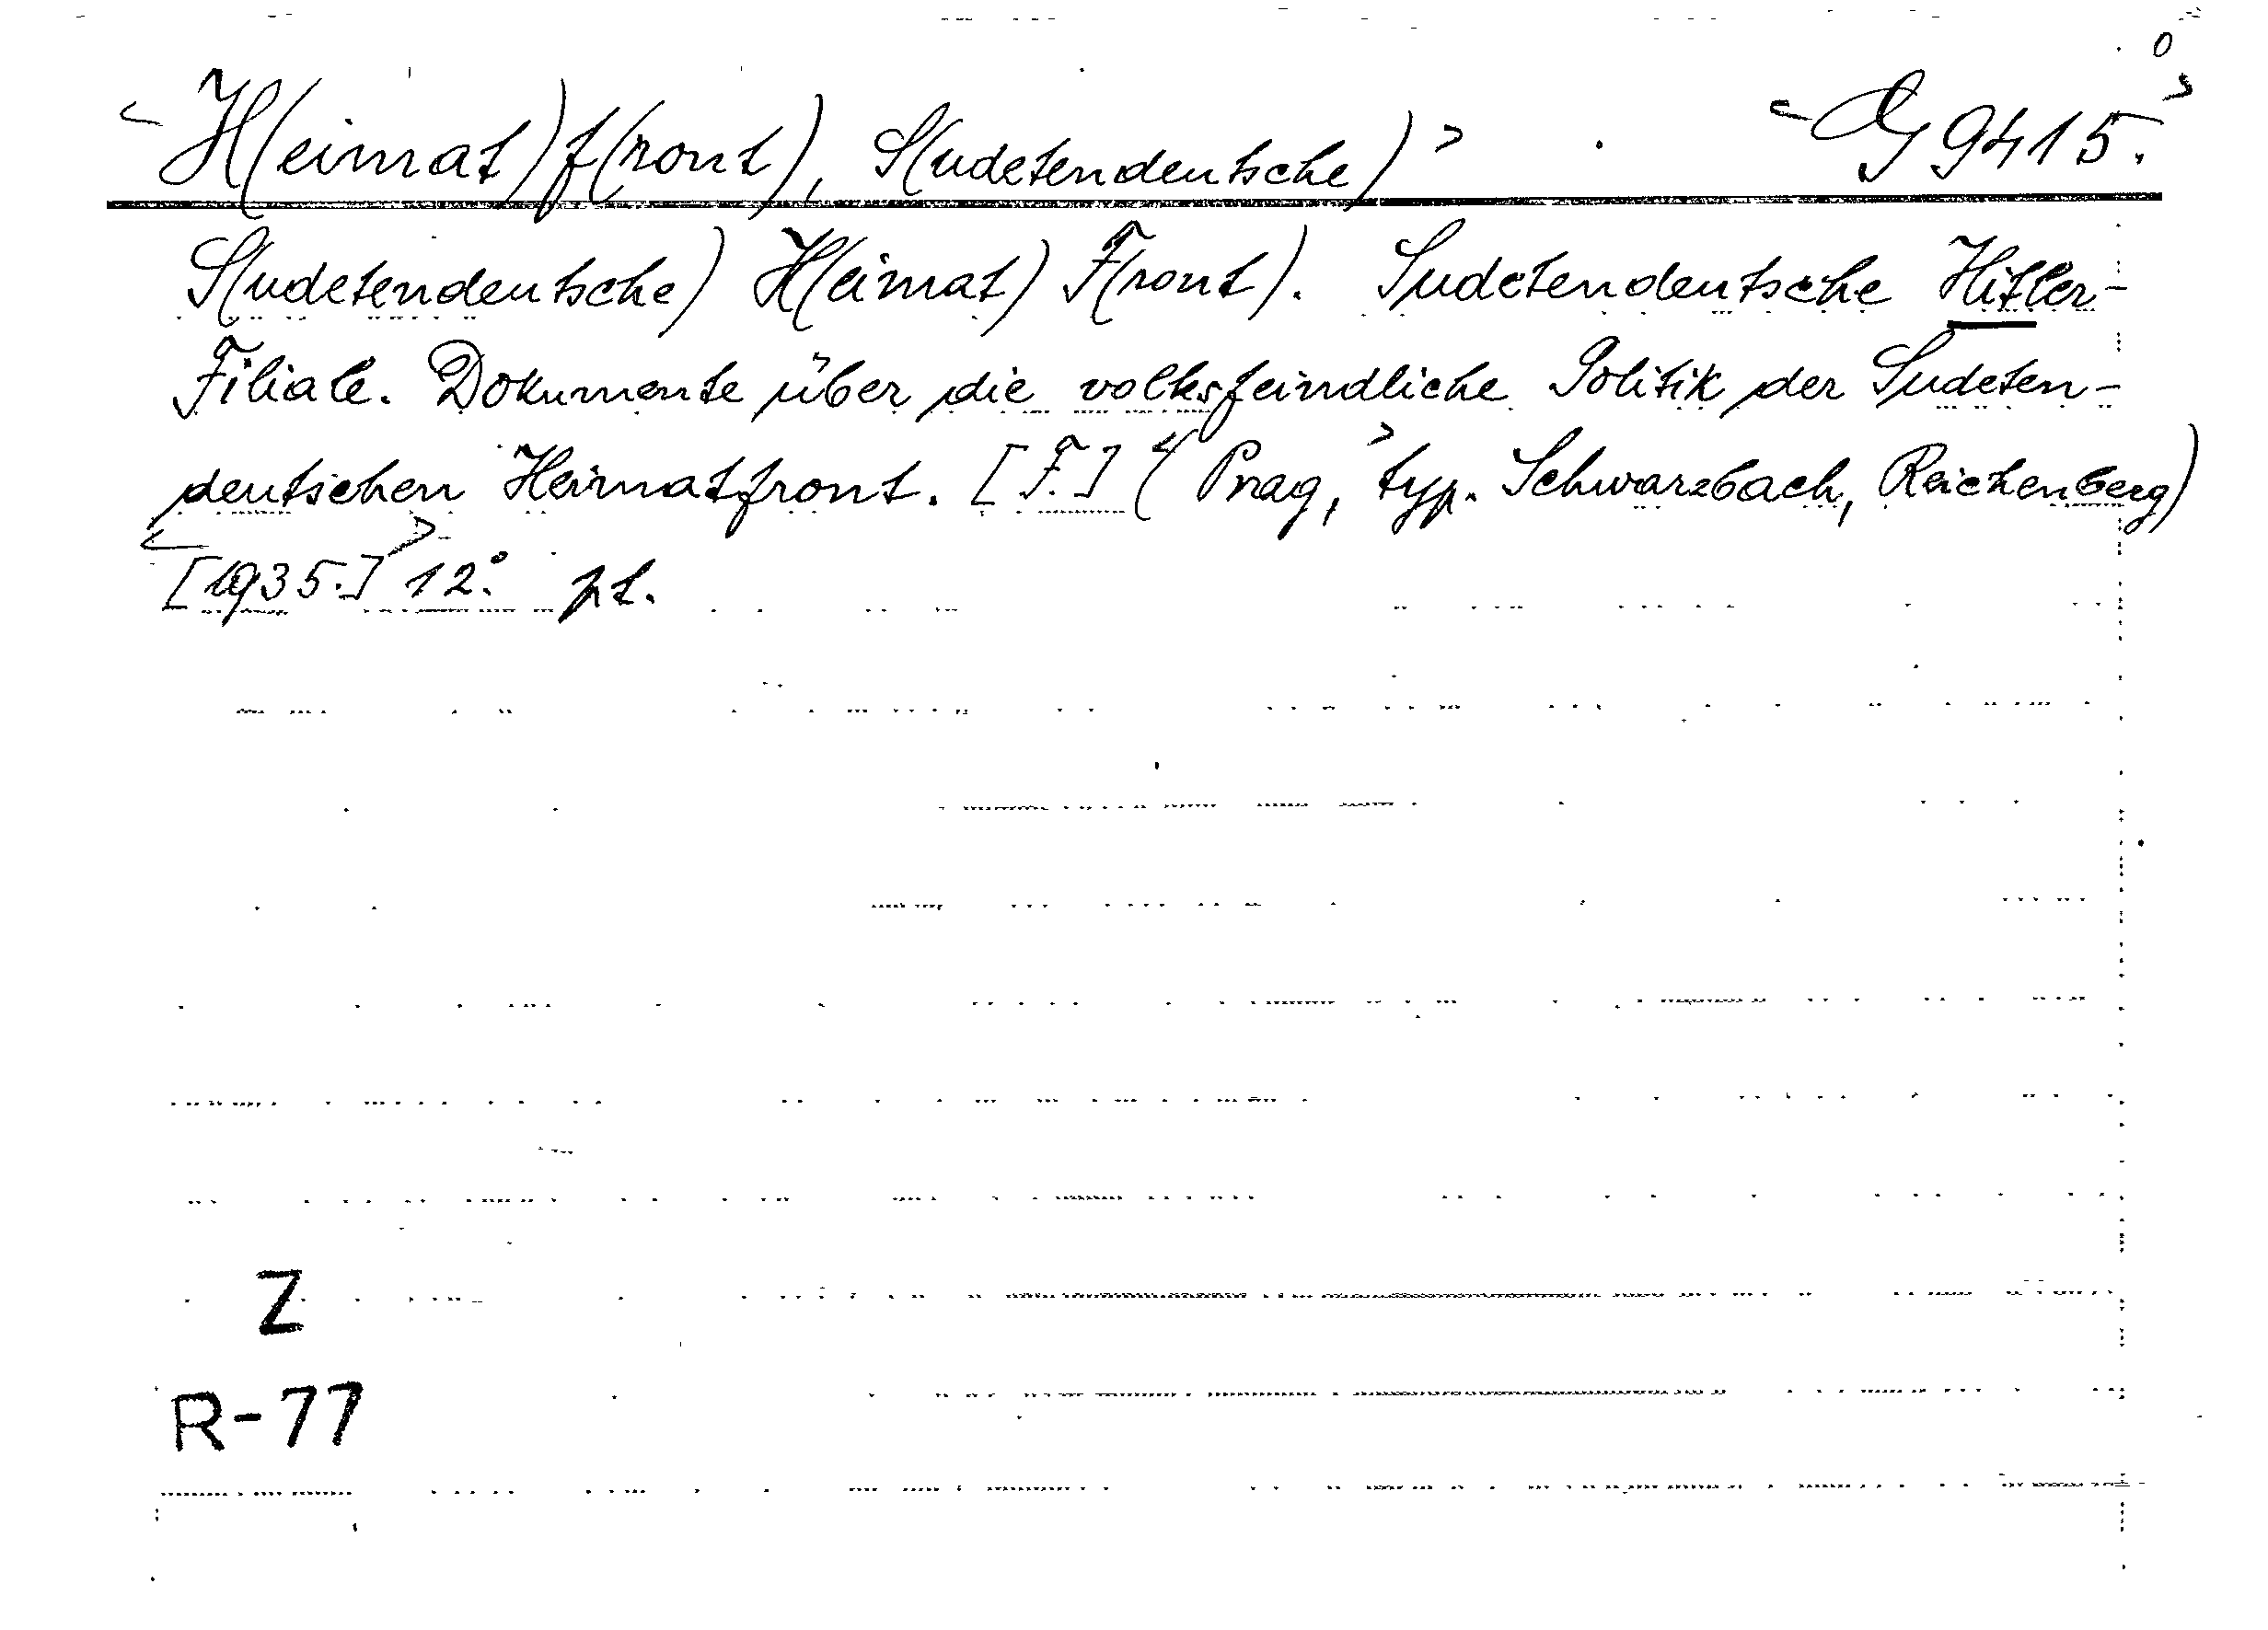 <H(eimat)f(ront), S(udetendeutsche)> <G 9415.>
S(udetendeutsche) H(eimat) F(ront). Sudetendeutsche Hitler-
Filiale. Dokumente über die volksfeindliche Politik der Sudeten-
deutschen Heimatfront. [F.] (<Prag,> typ. Schwarzbach, Reichenberg)
<[1935.]> 12° pt.
Z
R-77